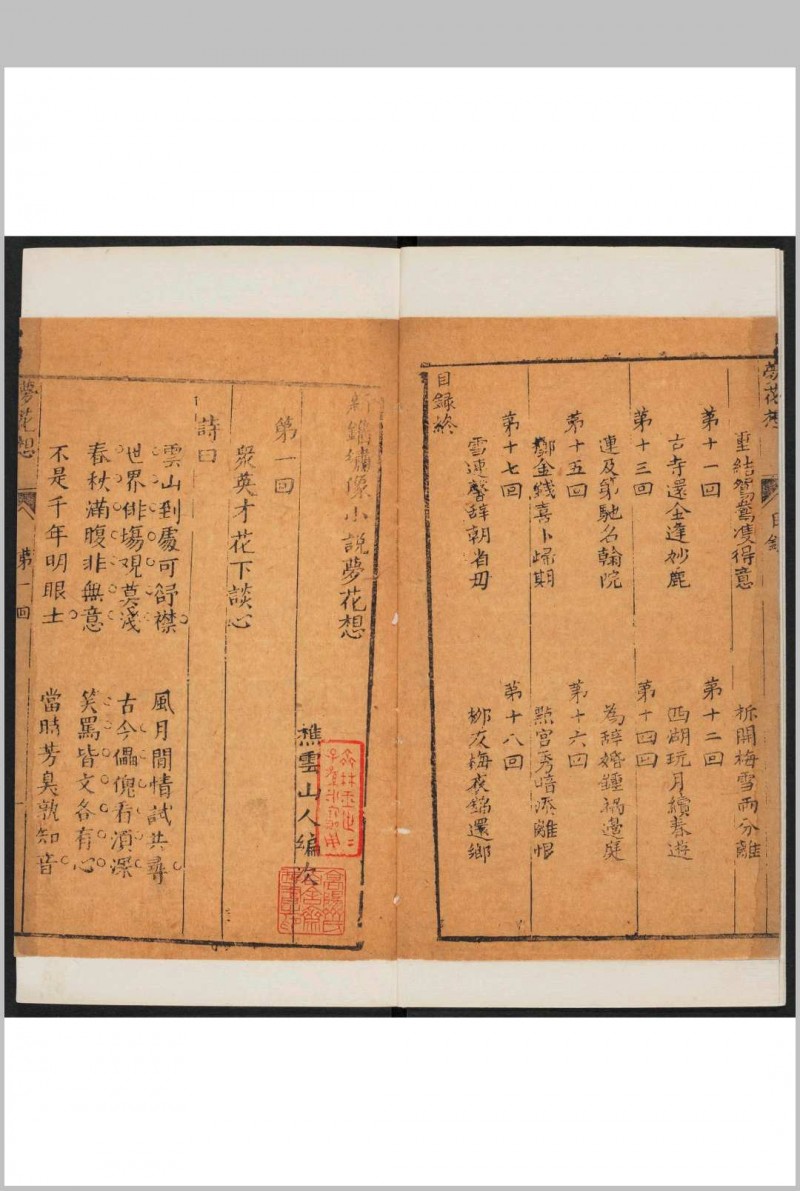 夢花想
目錄
重結鴛鴦獲得意　拆開梅雪兩分離
第十一回　第十二回
古寺還金逢妙麗　西湖玩月續春遊
第十三回　第十四回
連及第馳名翰院　為辭婚鍾禍邊庭
第十五回　第十六回
擲金錢喜卜歸期　點宮秀暗添離恨
第十七回　第十八回
雪連馨辭朝省母　柳友梅衣錦還鄉
目錄終
新鐫繡像小說夢花想
樵雲山人編次
第一回
眾英才花下談心
詩曰
雲山到處可舒襟　風月閒情試共尋
世界俳場觀莫淺　古今儡傀看須深
春秋滿腹非無意　笑罵皆文各有心
不是千年明眼士　當時芳臭孰知音
夢花想
第一回